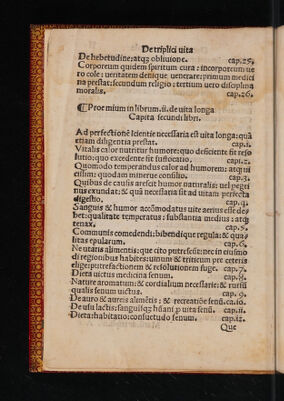 De triplici vita
De hebetudine: atqꝫ obliuione. cap.25.
Corporeum quidem spiritum cura: incorporeum ve
ro cole: veritatem denique venerare: primum medici
na prestat: secundum religio: tertium vero disciplina
moralis. cap.26.
¶ Proemium in librum .ii. de vita longa
Capita secundi libri.
Ad perfectionē scientie necessaria est vita longa: quā
etiam diligentia prestat. cap.i.
Vitalis calor nutritur humore: quo deficiente fit reso
lutio: quo excedente fit suffocatio. cap.2.
Quomodo temperandus calor ad humorem: atqꝫ vi
cissim: quodam minerue consilio. cap.3.
Quibus de causis arescit humor naturalis: vel peg
nus exundat: & quā necessaria sit ad vitam perfecta
digestio. cap.4.
Sanguis & humor accōmodatus vite aerius esse de
bet: qualitate temperatus: substantia medius: atqꝫ
tenax. cap.5.
Communis comedendi: bibendique regula: & qua
litas epularum. cap.6.
Ne vtaris alimentis: que cito putrescāt: nec in eiusmo
di regionibus habites: vinum & triticum pre ceteris
elige: putrefactionem & resolutionem fuge. cap.7.
Dieta victus medicina senum. cap.8.
Nature aromatum: & cordialium necessaria: &
qualis senum victus. cap.9.
De auro & aureis alimētis: & recreatiōe senū. ca.io.
De vsu lactis: sanguīsqꝫ hūani ꝓ vita senū. cap.ii.
Dieta: habitatio: consuetudo senum. cap.12.
Que